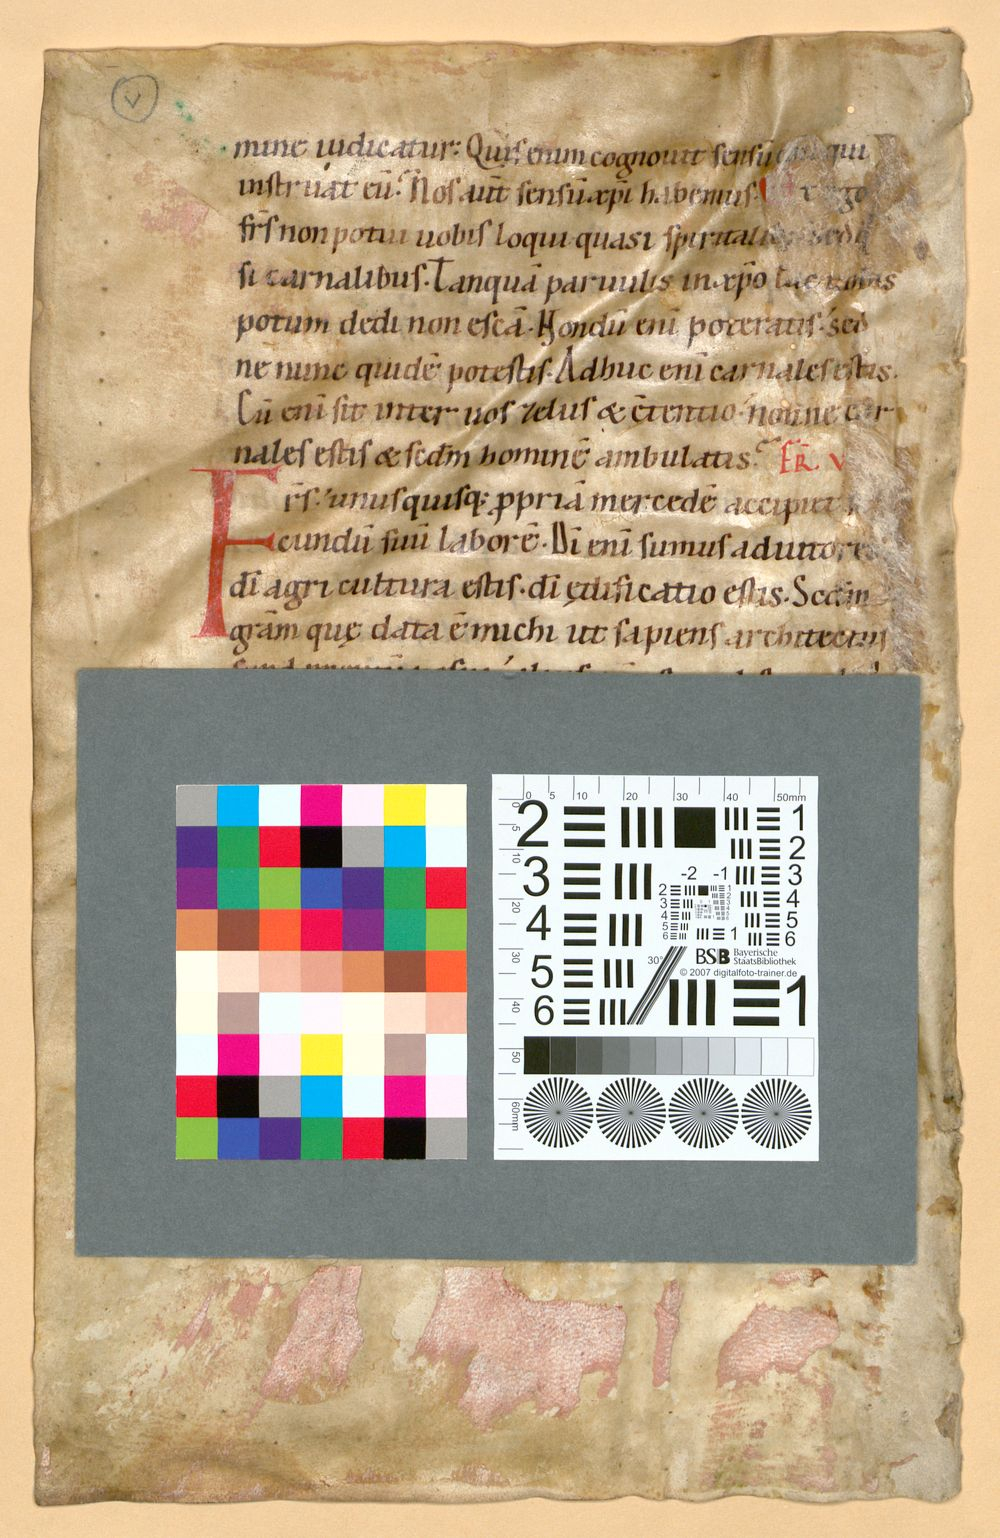 v
mine iudicatur: Quis enim cognouit sensū qui
instruat eū? Nos aūt sensū xp̄i habemus. ego
fr̄s non potui uobis loqui quasi spiritali
si carnalibus. Tanquā paruulis in xp̄o lac uobis
potum dedi non escā. Nondū enī poteratis. sed
ne nunc quidē potestis. Adhuc enī carnales estis.
Cū enī sit inter uos zelus & c̄tentio. nonne car
nales estis & scdm̄ hominē ambulatis? FR̄ V
Fr̄s. unusquisq; ꝓpriā mercedē accipiet
cundū suū laborē. Dī enī sumus adiutores
dī agri cultura estis. dī ędificatio estis. Scdm̄
grām quę data ē michi ut sapiens architectus
0 5 10 20 30 40 50mm
0 5 10 20 30 40 50 60mm
2 1
3 2
4 3
5 4
6 5
6
-2 -1
2 1
3 2
4 3
5 4
6 5
6
1
30°
BSB Bayerische
StaatsBibliothek
© 2007 digitalfoto-trainer.de
1